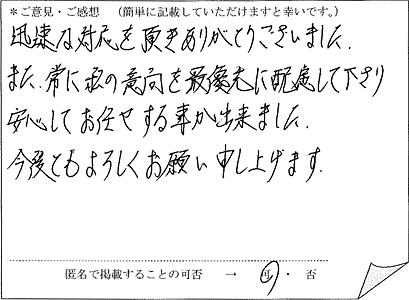 ＊ご意見・ご感想　（簡単に記載していただけますと幸いです。）
迅速な対応を頂きありがとうございました.
また.常に私の意向を最優先に配慮して下さり
安心してお任せする事が出来ました.
今後ともよろしくお願い申し上げます.
匿名で掲載することの可否　→　可・否